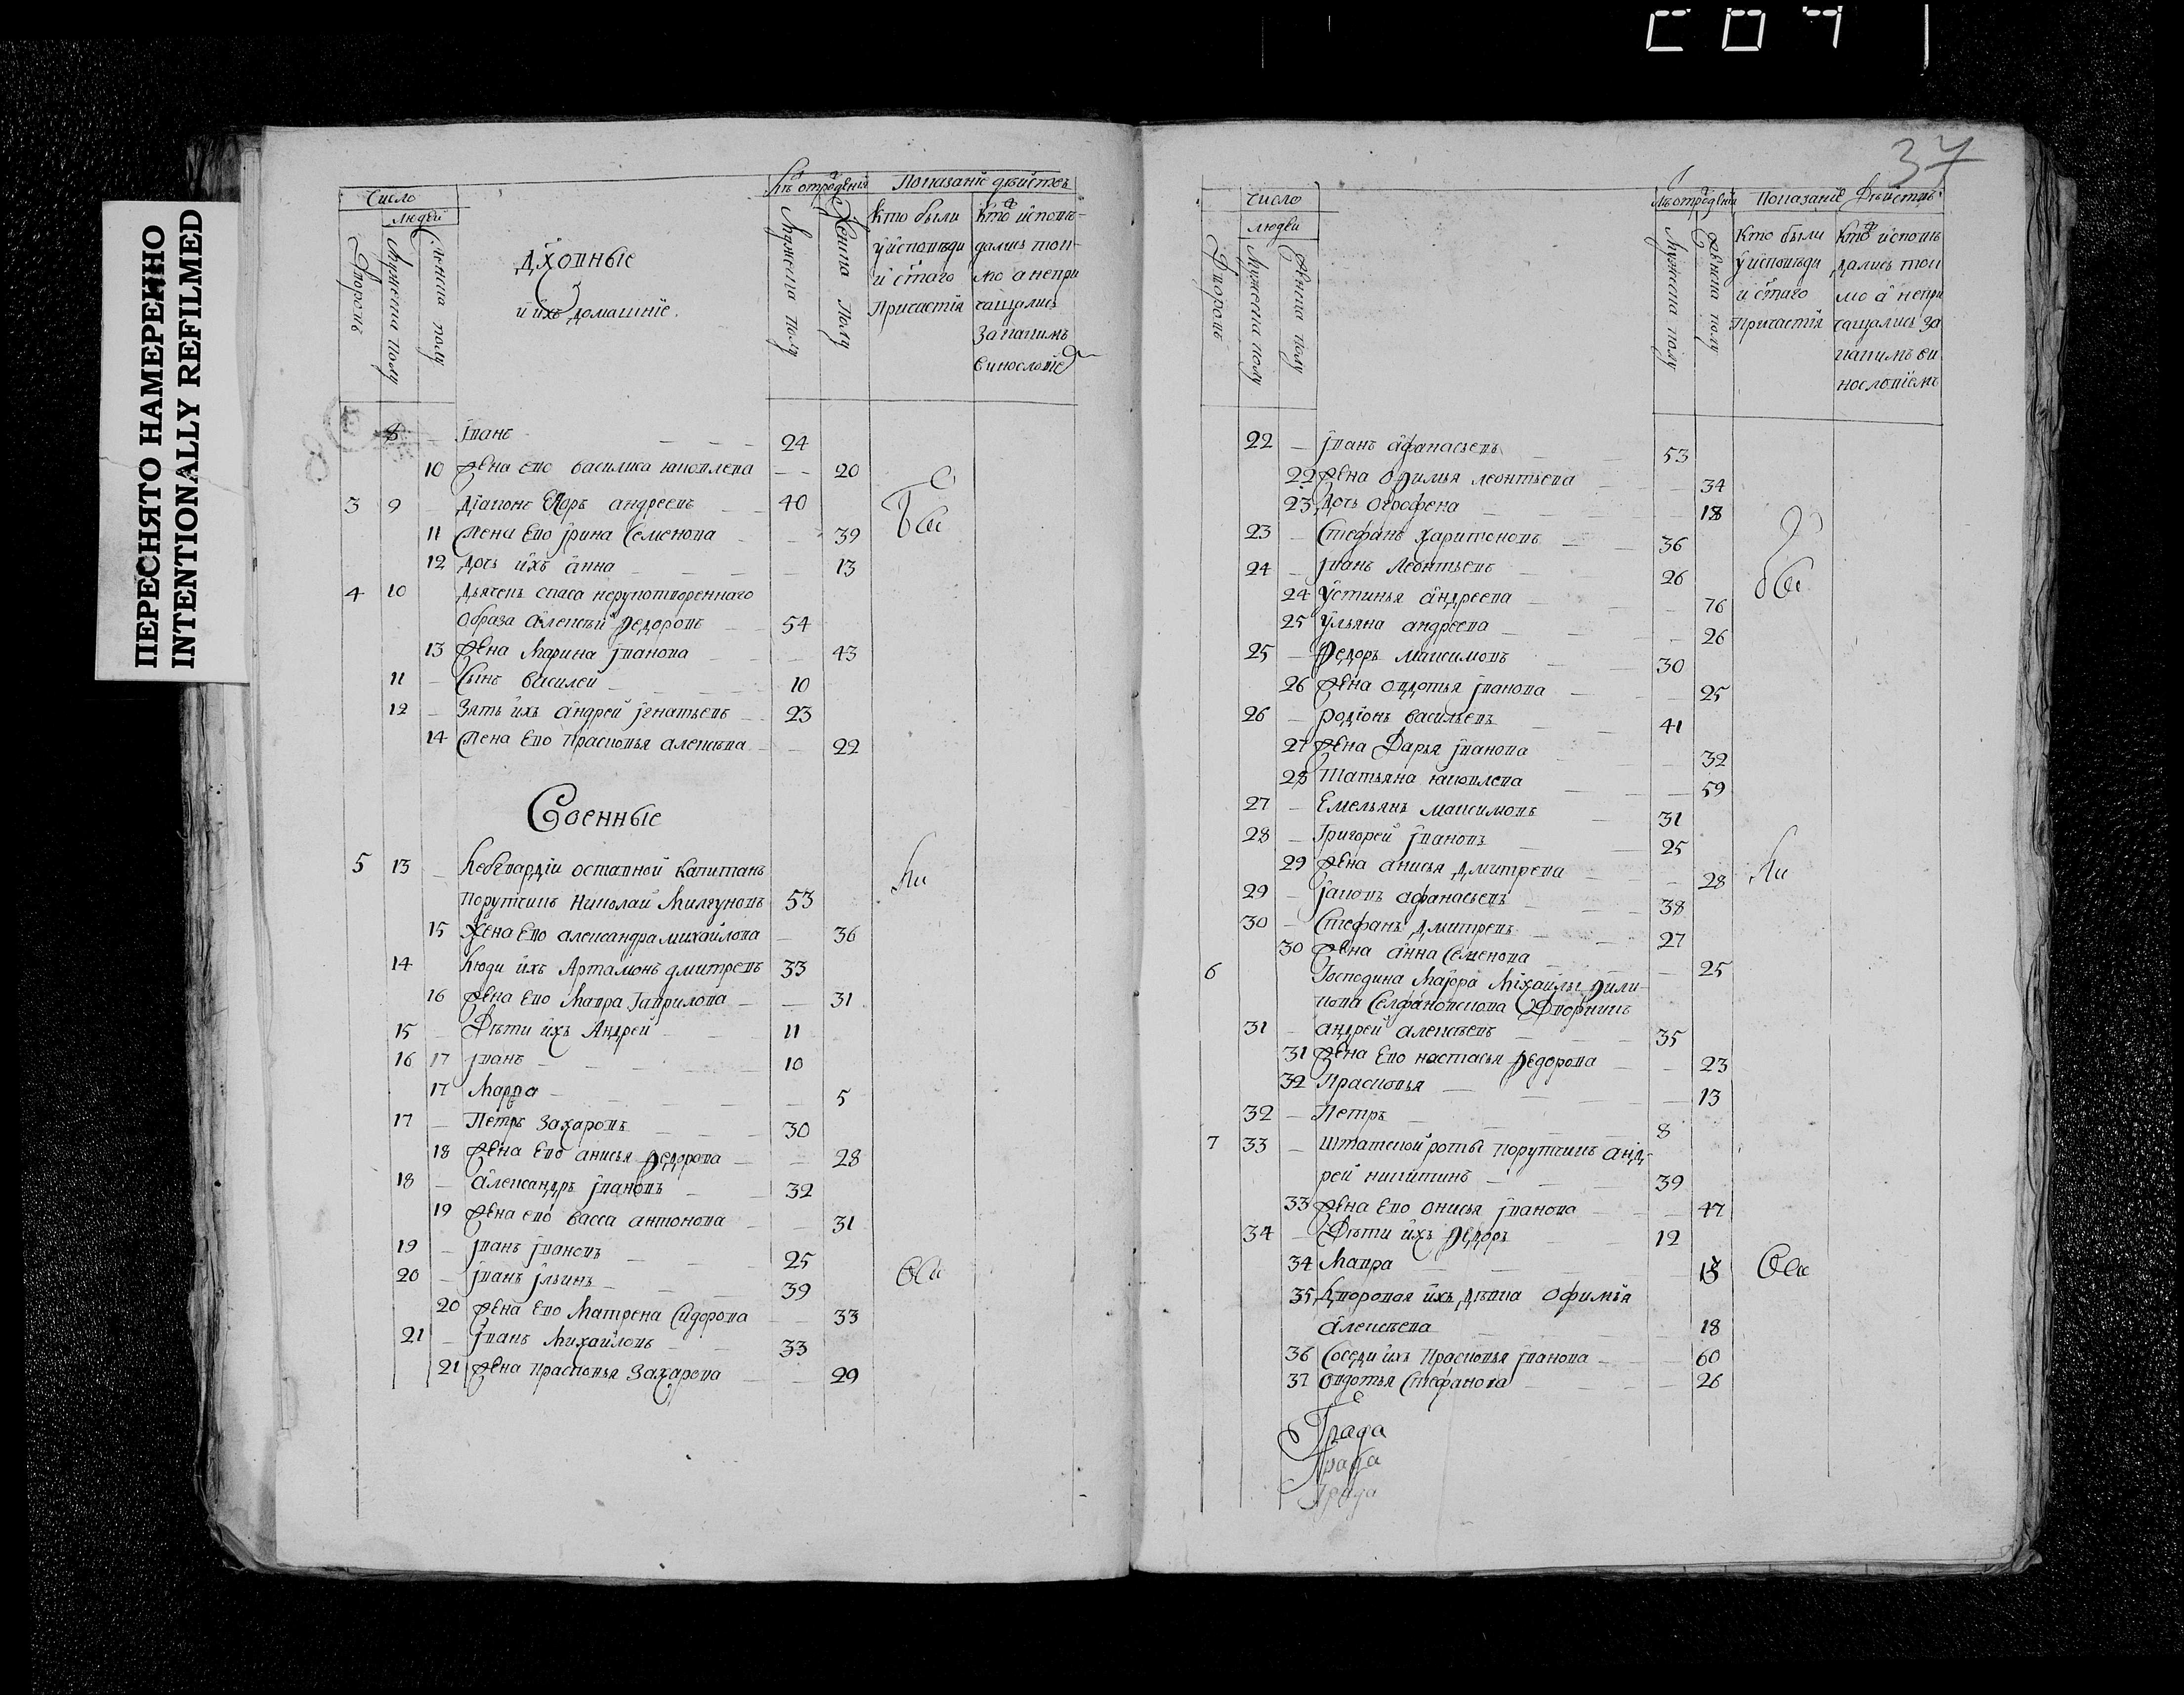 ПЕРЕСНЯТО НАМЕРЕННО
INTENTIONALLY REFILMED
37
Число
людей
Дворовъ
Мужеска полу
Женска полу
Дховные
и ихъ домашніе.
Лѣ от рожденія
Мужеска полу
Женска полу
Показаніе действъ
Кто были
у исповѣди
и стаго
Причастія
Кто исповѣ-
дались ток-
мо а непри
чащались
За каким
винословіе
8 Іванъ 24
10 Жена ево василиса яковлева 20
3 9 Діаконъ Егоръ андреевъ 40
11 Жена Ево Ірина Семенова 39
12 Дочь ихъ анна 13
4 10 Дьячекъ спаса нерукотвореннаго
образа Алексѣй Федоровъ 54
13 Жена Марина Іванова 43
11 Сынъ василей 10
12 Зять ихъ андрей Ігнатьевъ 23
14 Жена Ево Прасковья алексѣва 22
Военные
5 13 Лебгвардіи оставной капитанъ
порутчикъ Николай Милгуновъ 53
15 Жена Ево александра михайлова 36
14 Люди ихъ Артамонъ дмитревъ 33
16 Жена Ево Мавра Гаврилова 31
15 Дѣти ихъ Андрей 11
16 17 Іванъ 10
17 Марѳа 5
17 Петръ Захаровъ 30
18 Жена Ево анисья Федорова 28
18 Александръ Івановъ 32
19 Жена ево васса антонова 31
19 Іванъ Івановъ 25
20 Іванъ Ільинъ 39
20 Жена Ево Матрена Сидорова 33
21 Іванъ Михайловъ 33
21 Жена Прасковья Захарова 29
Число
людей
Дворовъ
Мужеска полу
Женска полу
Лѣ от рожденія
Мужеска полу
Женска полу
Показаніе Дѣйствъ
Кто были
у исповѣди
и стаго
Причастія
Кто исповѣ
дались ток
мо а непри
чащались за
какимъ ви
нословіемъ
22 Іванъ афанасьевъ 53
22 Жена Офимья леонтьева 34
23 Дочь Огрофена 18
23 Стефанъ Харитоновъ 36
24 Іванъ Леонтьевъ 26
24 Устинья андреева 76
25 Ульяна андреева 26
25 Федоръ максимовъ 30
26 Жена овдотья Іванова 25
26 Родіонъ васильевъ 41
27 Жена Дарья Іванова 32
28 Татьяна яковлева 59
27 Емельянъ максимовъ 31
28 Григорей Івановъ 25
29 Жена анисья Дмитрева 28
29 Іаковъ афанасьевъ 38
30 Стефанъ Дмитревъ 27
30 Жена анна Семенова 25
6 Господина Маіора Михайлы Фили
пова Дворникъ
31 андрей алексѣевъ 35
31 Жена Ево настасья Федорова 23
32 Прасковья 13
32 Петръ 8
7 33 Штатской роты порутчикъ анд
рей никитинъ 39
33 Жена Ево онисья Іванова 47
34 Дѣти ихъ Федоръ 12
34 Мавра
35 Дворовая ихъ дѣвка Офимья
алексѣева 18
36 Соседи ихъ Прасковья Іванова 60
37 овдотья Стефанова 26
Града
Града
Града